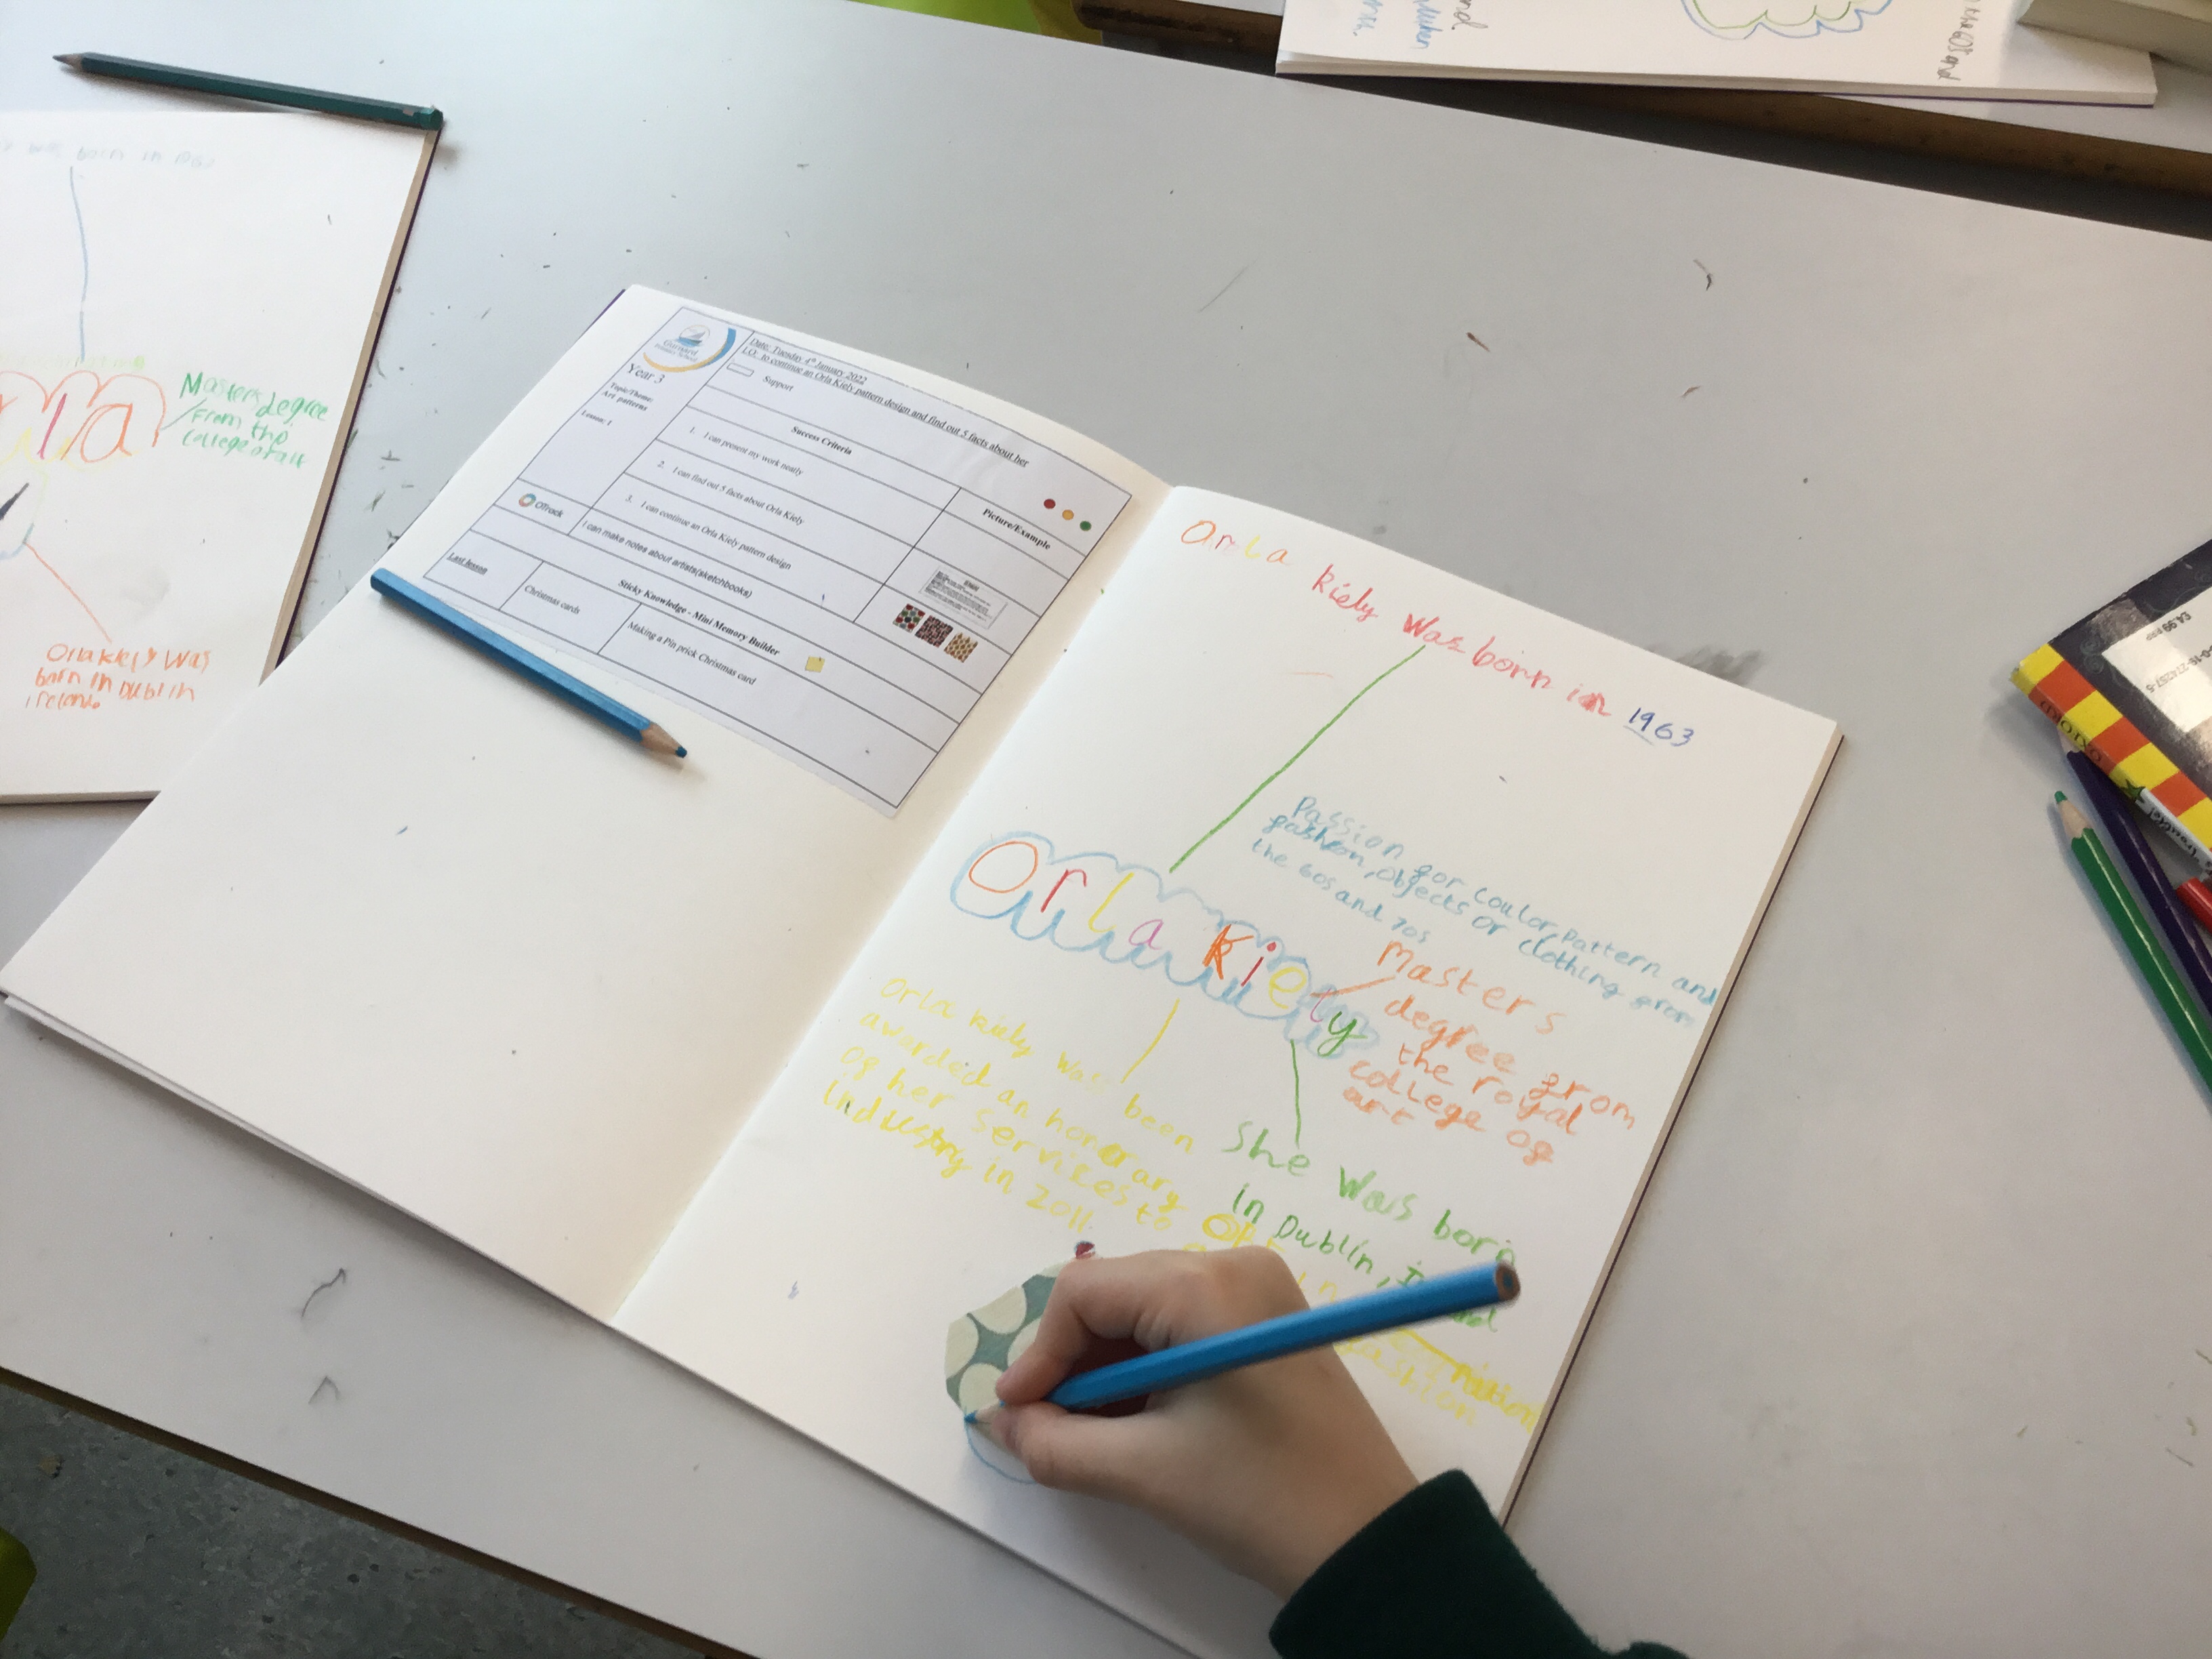 was born in 1960
Masters degree
From the
College of art
Orla kiely was
born in Dublin
ireland
Gurnard
Primary School
Year 3
Topic/Theme:
Art patterns
Lesson: 1
Date: Tuesday 4th January 2022
L.O: to continue an Orla Kiely pattern design and find out 5 facts about her
Support
Success Criteria
Picture/Example
1. I can present my work neatly
2. I can find out 5 facts about Orla Kiely
3. I can continue an Orla Kiely pattern design
Offrock
I can make notes about artists(sketchbooks)
Sticky Knowledge - Mini Memory Builder
Last lesson
Christmas cards
Making a Pin prick Christmas card
Orla kiely was born in 1963
Passion for coulor, pattern and
fasheon, objects or clothing from
the 60s and 70s
Orla kiely
Masters
degree from
the royal
college of
art
Orla kiely was been
awarded an honorary OBE
of her services to
industry in 2011.
She was born
in Dublin,
fashion
the 60s and
£4.99 RRP
OXFORD